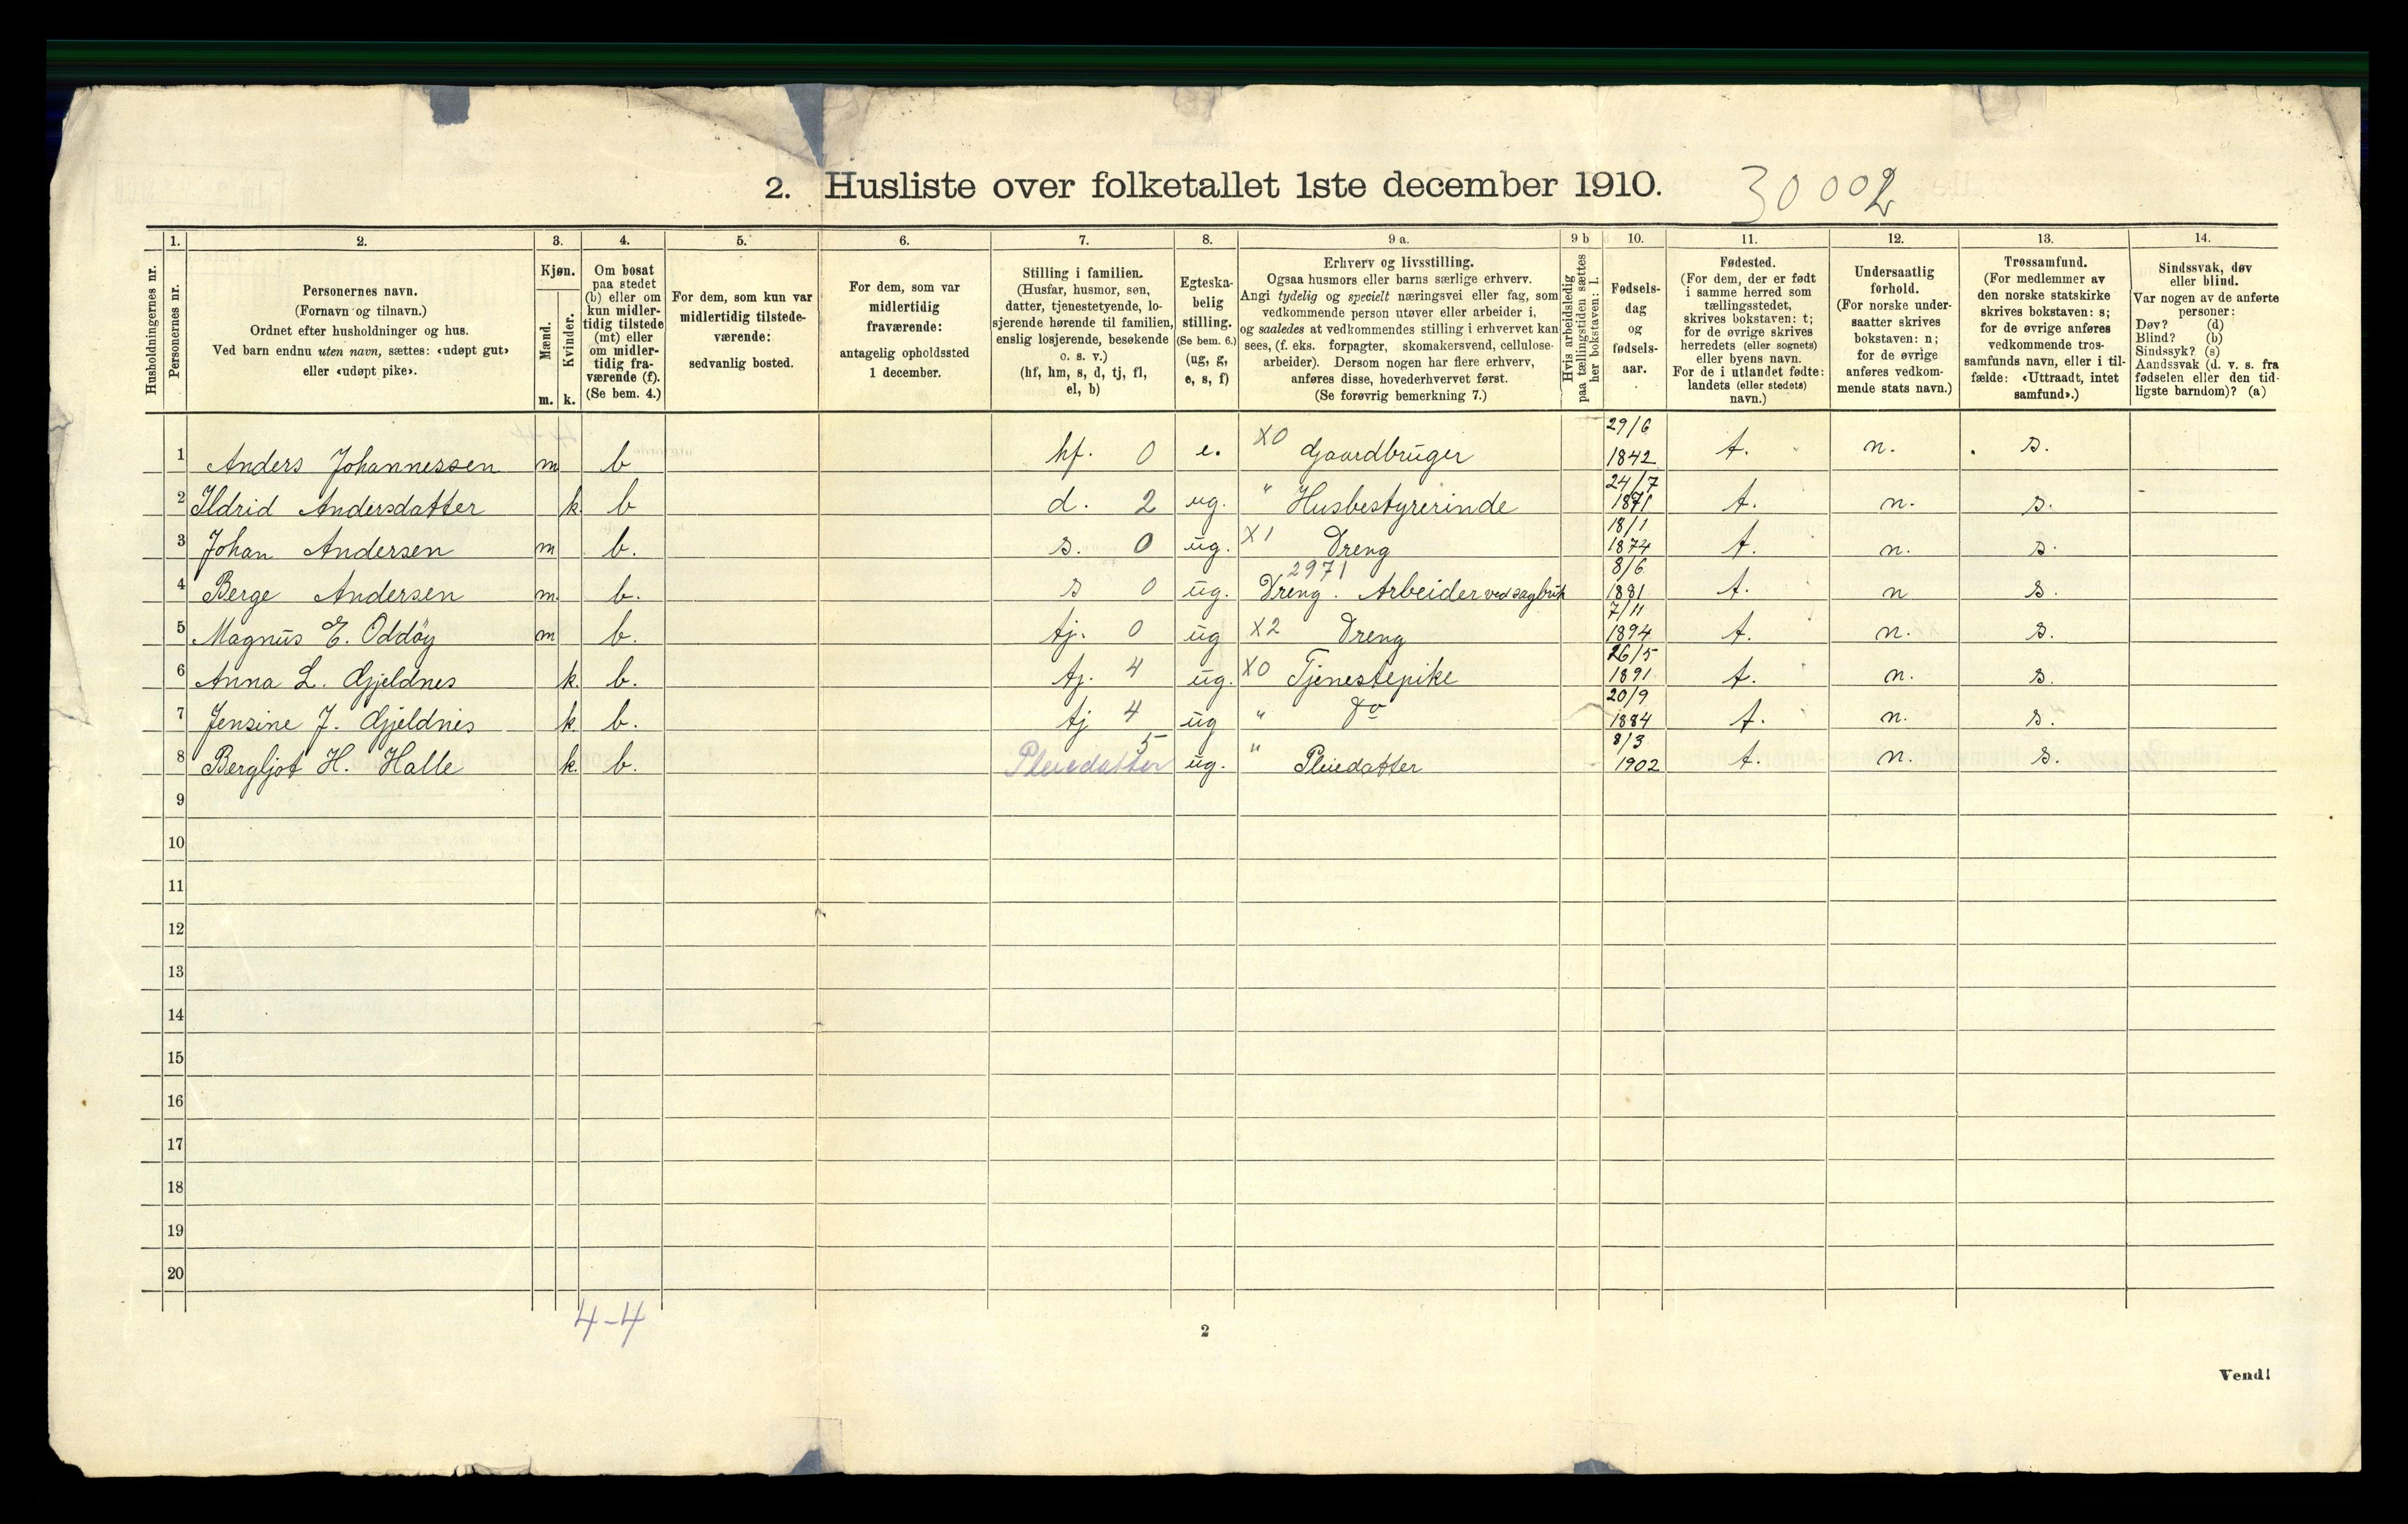 2. Husliste over folketallet 1ste december 1910. 30002
1. 2. 3. 4. 5. 6. 7. 8. 9 a. 9 b 10. 11. 12. 13. 14.
Husholdningernes nr.
Personernes nr.
Personernes navn.
(Fornavn og tilnavn.)
Ordnet efter husholdninger og hus.
Ved barn endnu uten navn, sættes: «udøpt gut»
eller «udøpt pike».
Kjøn.
Mænd.
Kvinder.
m. k.
Om bosat
paa stedet
(b) eller om
kun midler-
tidig tilstede
(mt) eller
om midler-
tidig fra-
værende (f).
(Se bem. 4.)
For dem, som kun var
midlertidig tilstede-
værende:
sedvanlig bosted.
For dem, som var
midlertidig
fraværende:
antagelig opholdssted
1 december.
Stilling i familien.
(Husfar, husmor, søn,
datter, tjenestetyende, lo-
sjerende hørende til familien,
enslig losjerende, besøkende
o. s. v.)
(hf, hm, s, d, tj, fl,
el, b)
Egteska-
belig
stilling.
(Se bem. 6.)
(ug, g,
e, s, f)
Erhverv og livsstilling.
Ogsaa husmors eller barns særlige erhverv.
Angi tydelig og specielt næringsvei eller fag, som
vedkommende person utøver eller arbeider i,
og saaledes at vedkommendes stilling i erhvervet kan
sees, (f. eks. forpagter, skomakersvend, cellulose-
arbeider). Dersom nogen har flere erhverv,
anføres disse, hovederhvervet først.
(Se forøvrig bemerkning 7.)
Hvis arbeidsledig
paa tællingstiden sættes
her bokstaven: l.
Fødsels-
dag
og
fødsels-
aar.
Fødested.
(For dem, der er født
i samme herred som
tællingsstedet,
skrives bokstaven: t;
for de øvrige skrives
herredets (eller sognets)
eller byens navn.
For de i utlandet fødte:
landets (eller stedets)
navn.)
Undersaatlig
forhold.
(For norske under-
saatter skrives
bokstaven: n;
for de øvrige
anføres vedkom-
mende stats navn.)
Trossamfund.
(For medlemmer av
den norske statskirke
skrives bokstaven: s;
for de øvrige anføres
vedkommende tros-
samfunds navn, eller i til-
fælde: «Uttraadt, intet
samfund».)
Sindssvak, døv
eller blind.
Var nogen av de anførte
personer:
Døv? (d)
Blind? (b)
Sindssyk? (s)
Aandssvak (d. v. s. fra
fødselen eller den tid-
ligste barndom)? (a)
1 Anders Johannessen m b hf. 0 e. X0 Gaardbruger 29/6 1842 t. n. s.
2 Ildrid Andersdatter k. b d. 2 ug. " Husbestyrerinde 24/7 1871 t. n. s.
3 Johan Andersen m b. s. 0 ug. X1 Dreng 18/1 1874 t. n. s.
4 Berge Andersen m. b. s 0 ug. 2971 Dreng. Arbeider ved sagbruk 8/6 1881 t. n s.
5 Magnus E. Oddøy m b. tj. 0 ug X2 Dreng 7/11 1894 t. n. s.
6 Anna L. Gjeldnes k. b. tj. 4 ug. X0 Tjenestepike 26/5 1891 t. n. s.
7 Jensine J. Gjeldnes k b. tj 4 ug " Do 20/9 1884 t. n. s.
8 Bergljot H. Halle k. b. Pleiedatter 5 ug. " Pleiedatter 8/3 1902 t. n. s.
9
10
11
12
13
14
15
16
17
18
19
20
4-4
2
Vend!